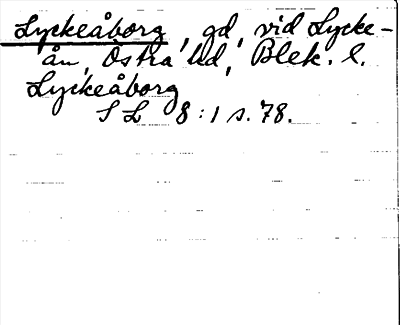 Lyckeåborg, gd, vid Lycke-
ån, Östra hd, Blek. l.
Lyckeåborg
S L 8:1 s. 78.